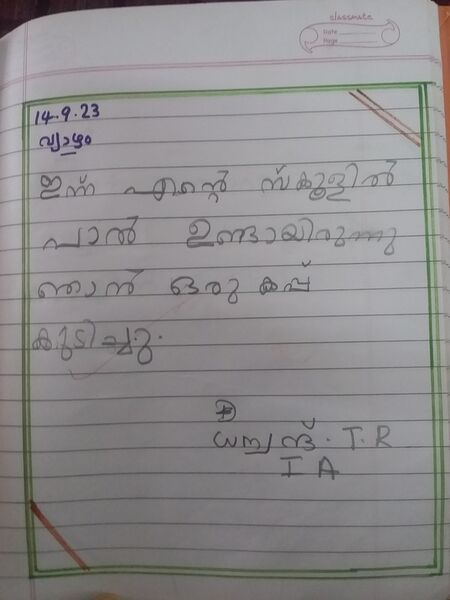 classmate
Date
Page
14.9.23
വ്യാഴം
ഇന്ന് എന്റെ സ്കൂളിൽ
പാൽ ഉണ്ടായിരുന്നു
ഞാൻ ഒരു കപ്പ്
കുടിച്ചു.
T. R
I A